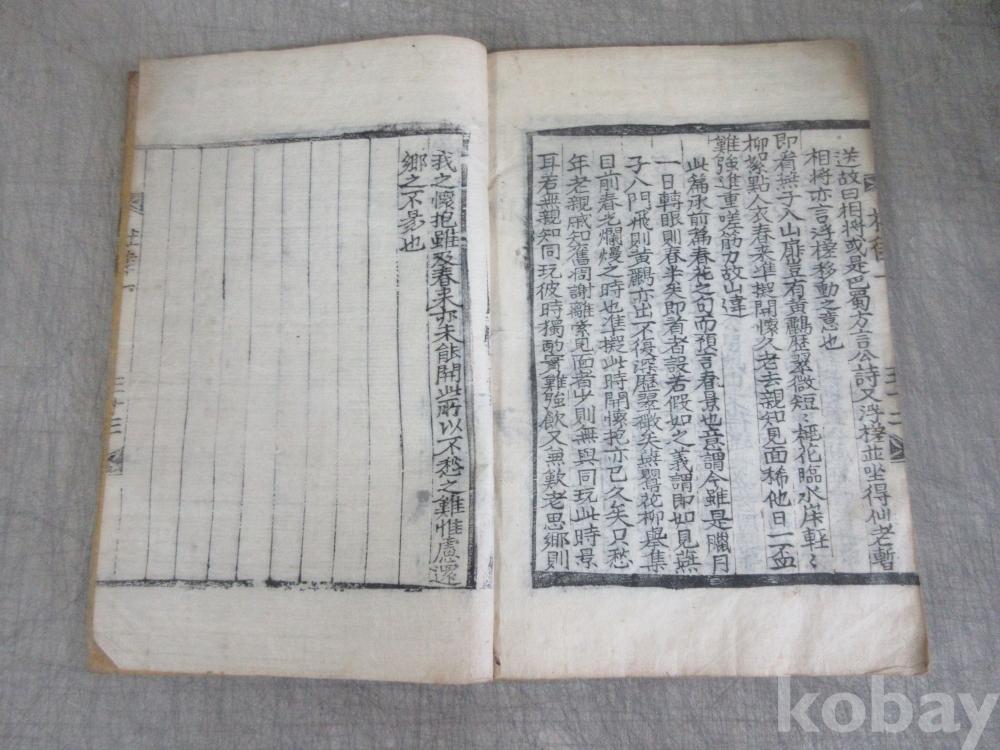 送故曰相將或是巴蜀方言公詩又浮槎並坐得仙老暫
相將亦言浮槎移動之意也
即看燕子入山扉豈有黃鸝歷翠微短〻桃花臨水岸輕〻
柳絮點人衣春來準擬開懷久老去親知見面稀他日一盃
難強進重嗟筋力故山違
此篇承前篇春花之句而預言春景也意謂今雖是臘月
一日轉眼則春半矣即看者設若假如之義謂即如見燕
子入門飛則黃鸝亦出不復深歷翠微矣燕鸎花柳擧集
目前春光爛熳之時也準擬此時開懷抱亦已久矣只愁
年老親戚知舊凋謝離索見面者少則無與同玩此時景
耳若無親知同玩彼時獨酌實難強飮又無歎老思鄕則
我之懷抱雖及春來亦未能開此所以不愁之難惟慮還
鄕之不易也
kobay